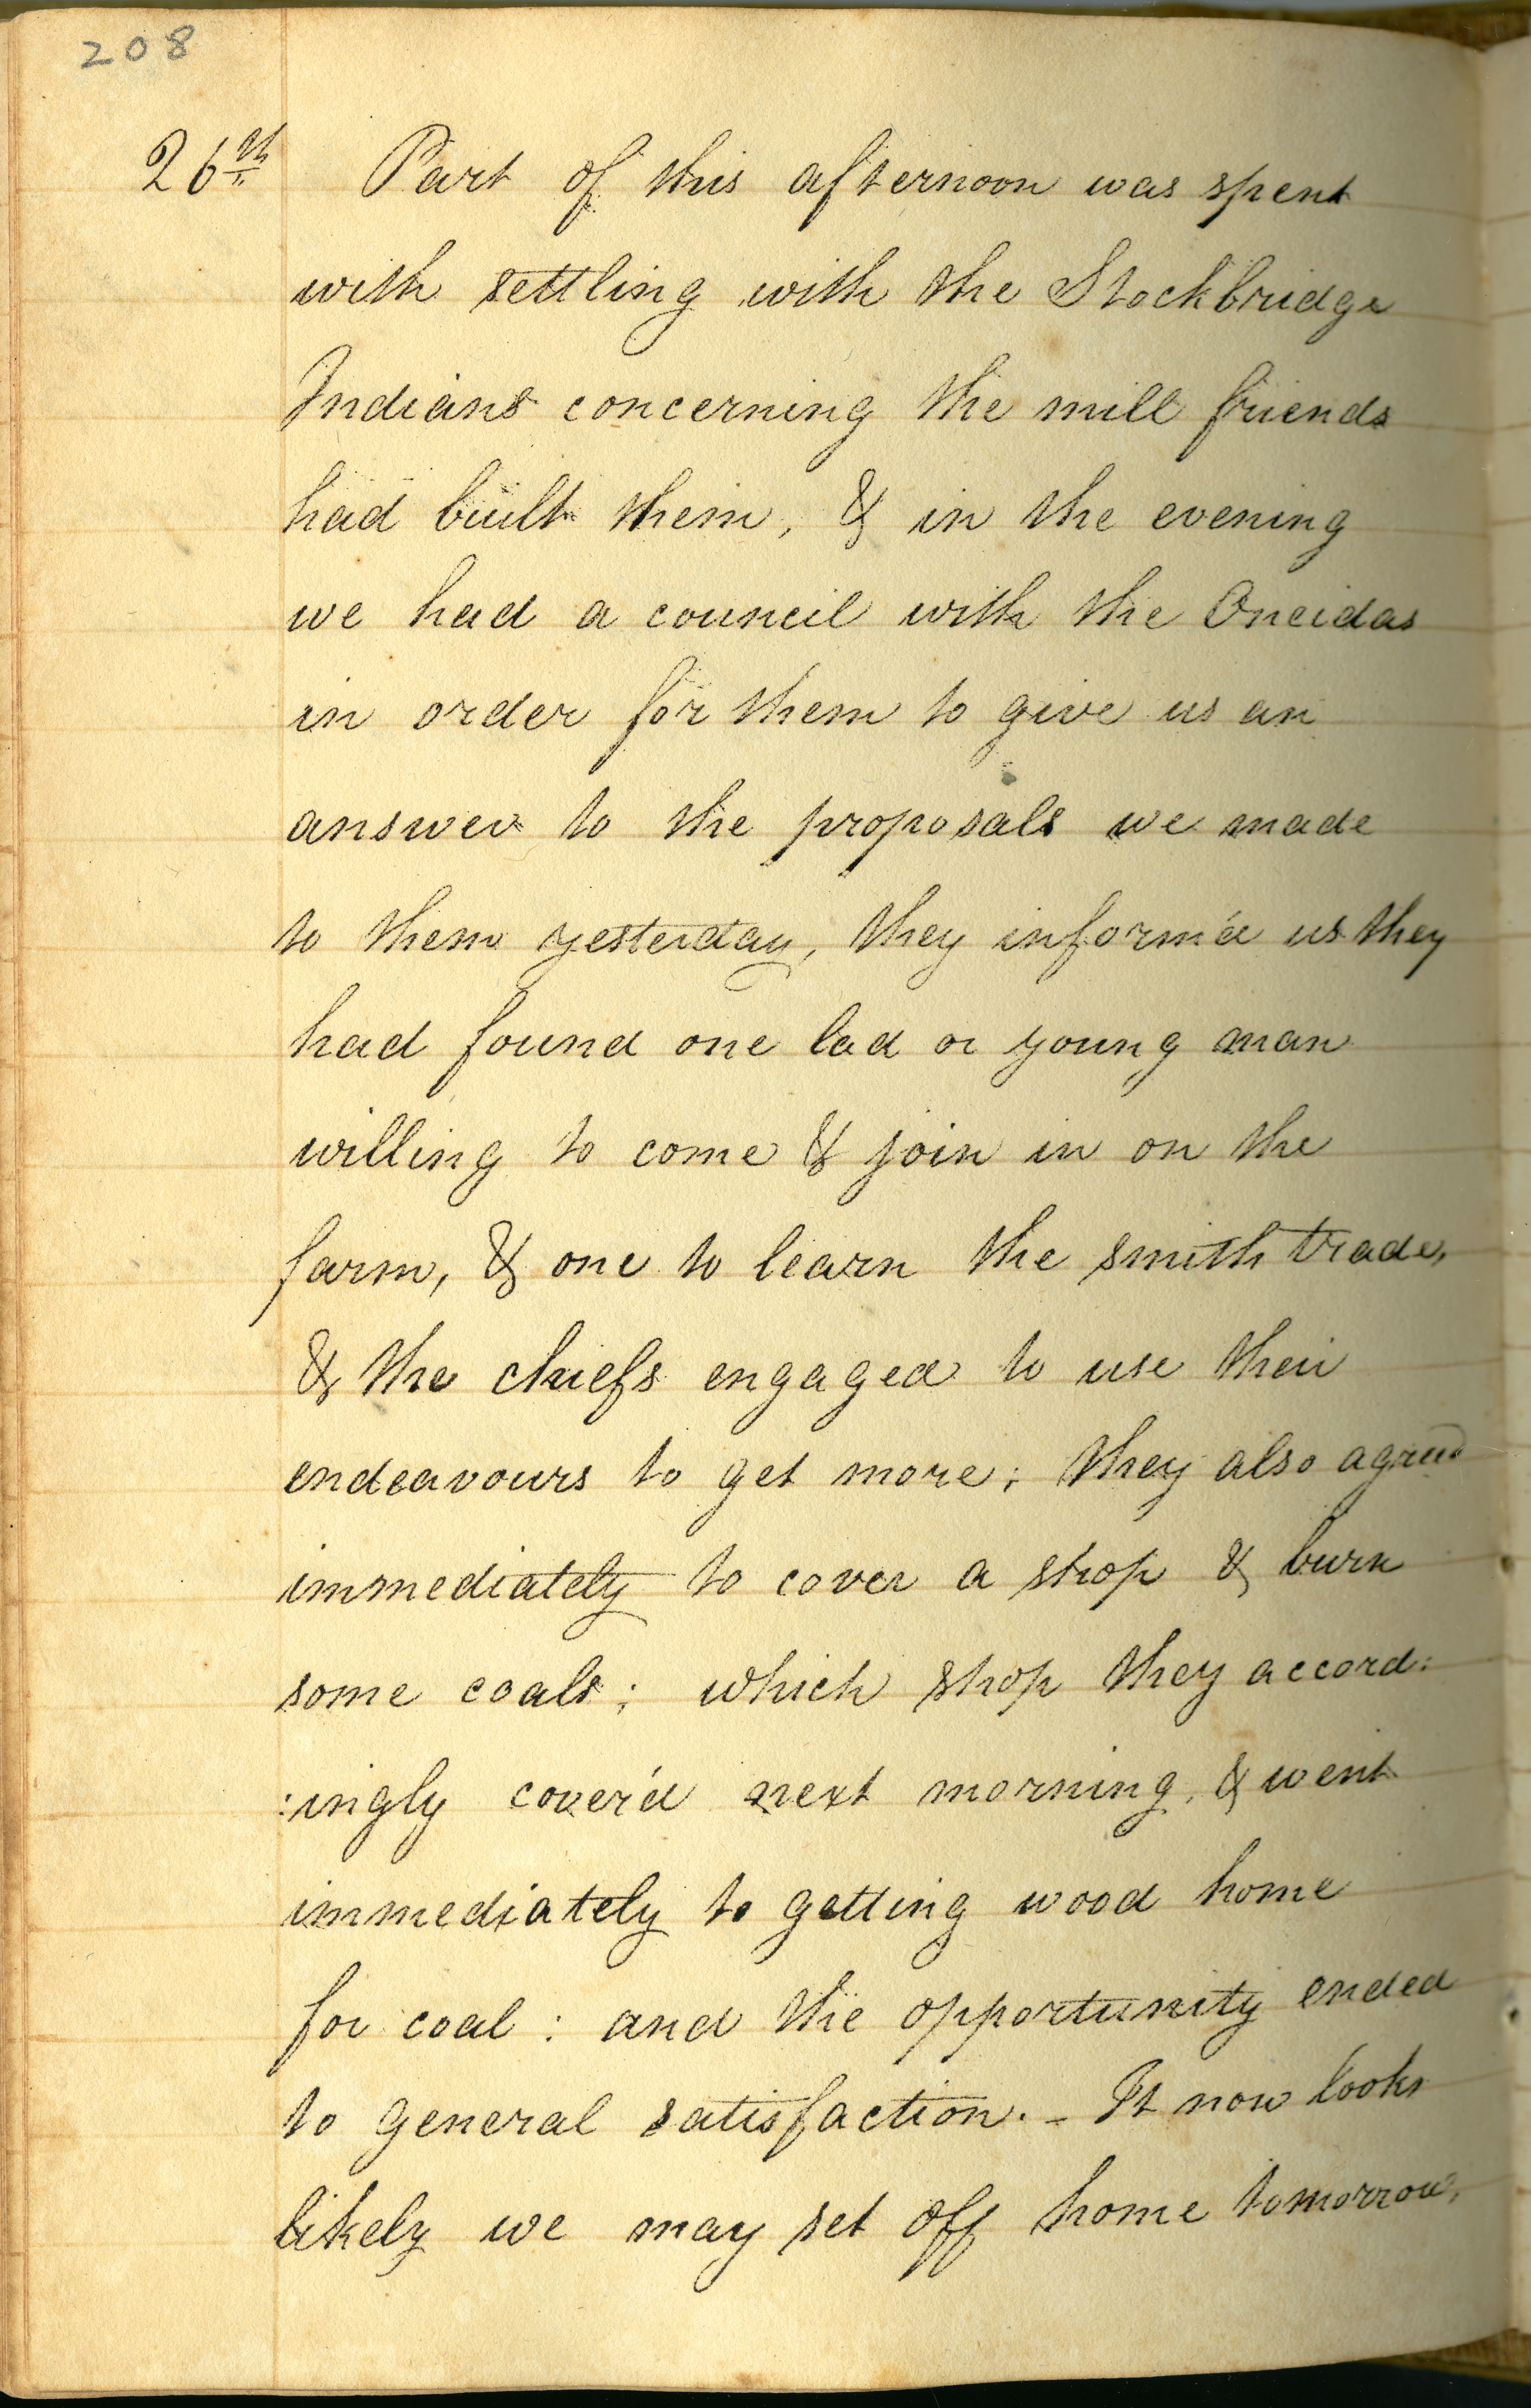 208
26th Part of this afternoon was spent
with settling with the Stockbridge
Indians concerning the mill friends
had built them, & in the evening
we had a council with the Oneidas
in order for them to give us an
answer to the proposals we made
to them yesterday, they inform'd us they
had found one lad or young man
willing to come & join in on the
farm, & one to learn the smith trade,
& the chiefs engaged to use their
endeavours to get more; they also agreed
immediately to cover a shop & burn
some coals; which shop they accord:
:ingly cover'd next morning, & went
immediately to getting wood home
for coal: and the opportunity ended
to general satisfaction. - It now looks
likely we may set off home tomorrow,